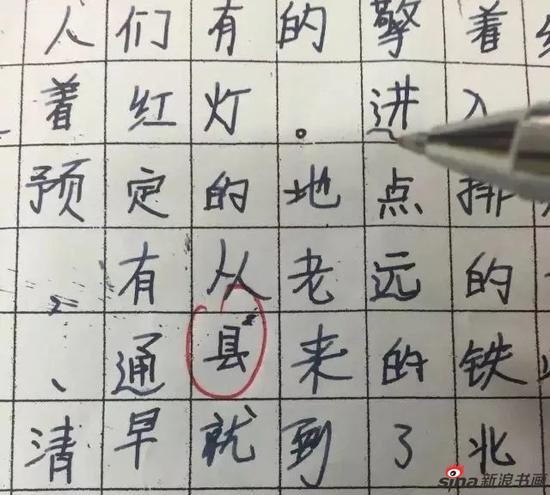 人们有的擎着
着红灯。进入
预定的地点排
有从老远的
、通县来的铁
清早就到了北
sina新浪书画